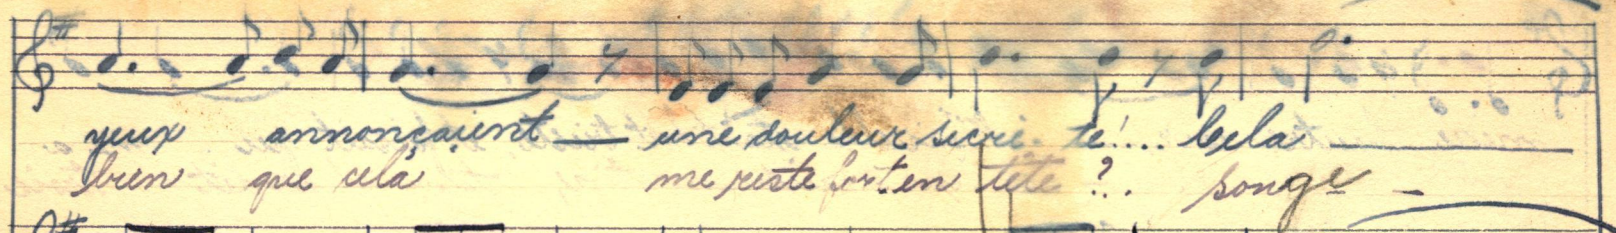 yeux annonçaient — une douleur secrè-te!.... Cela —
bien que cela me reste fort en tête ?.. songe -